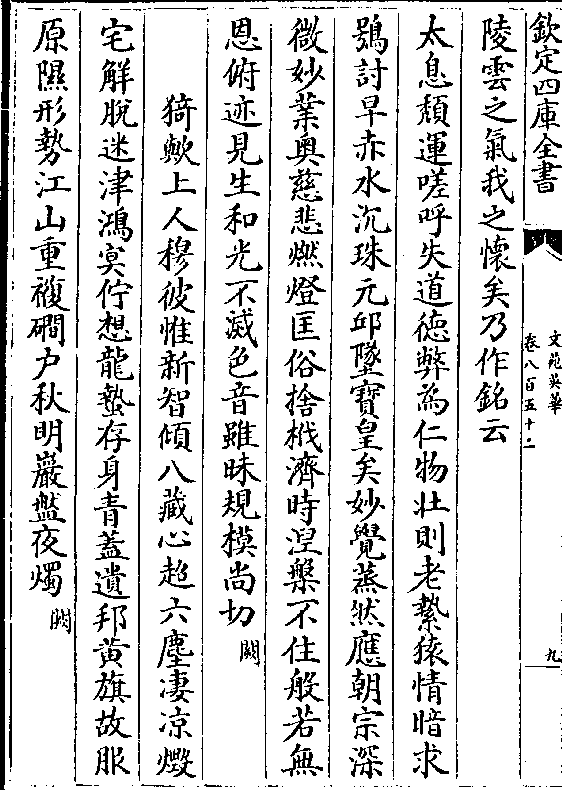 欽定四庫全書
文苑英華
卷八百五十二
九
陵雲之氣我之懷矣乃作銘云
太息頹運嗟呼失道德弊為仁物壯則老縶猿情暗求
鴞討早赤水沉珠元邱墜寶皇矣妙覺蒸然應朝宗深
微妙業奥慈悲燃燈匡俗捨栰濟時湼槃不住般若無
恩俯迹見生和光不滅色音雖昧規模尚切闕
猗歟上人穆彼惟新智傾八藏心超六塵凄凉燬
宅解脫迷津鴻㝠佇想龍蟄存身青蓋遺邦黄旗故服
原隰形勢江山重複磵户秋明巖龕夜燭闕